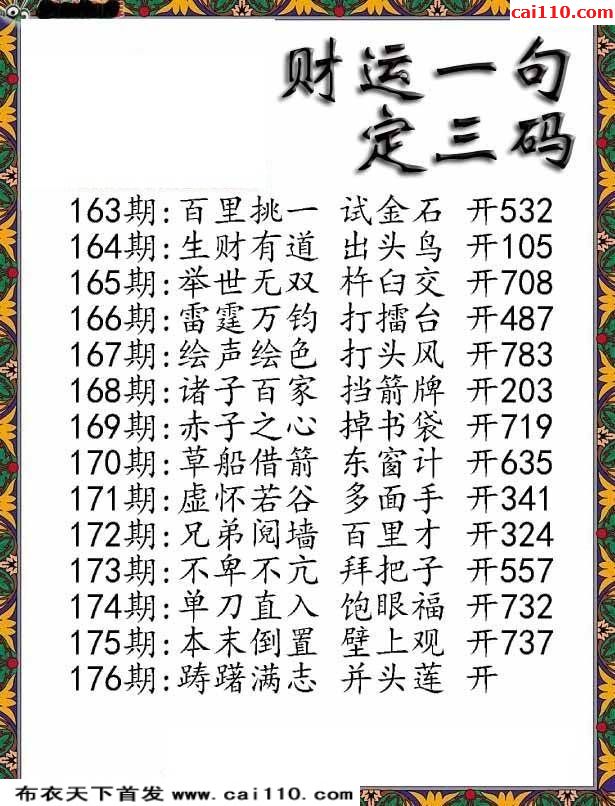 cai110.com
财运一句
定三码
163期:百里挑一 试金石 开532
164期:生财有道 出头鸟 开105
165期:举世无双 杵臼交 开708
166期:雷霆万钧 打擂台 开487
167期:绘声绘色 打头风 开783
168期:诸子百家 挡箭牌 开203
169期:赤子之心 掉书袋 开719
170期:草船借箭 东窗计 开635
171期:虚怀若谷 多面手 开341
172期:兄弟阋墙 百里才 开324
173期:不卑不亢 拜把子 开557
174期:单刀直入 饱眼福 开732
175期:本末倒置 壁上观 开737
176期:踌躇满志 并头莲 开
布衣天下首发 www.cai110.com